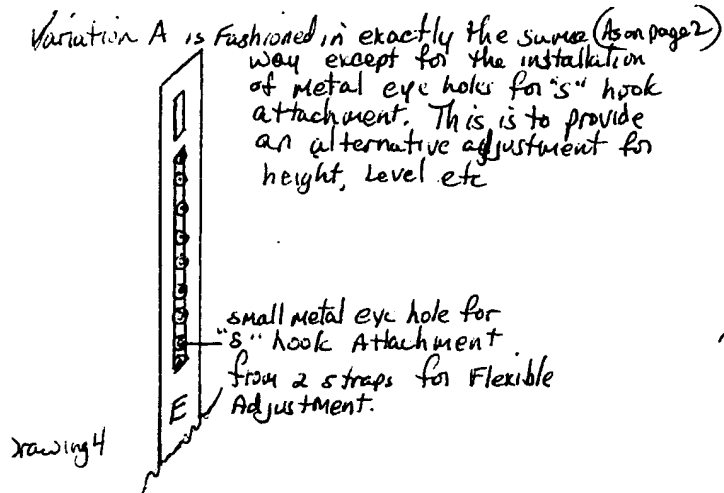 Variation A is Fashioned in exactly the same (As on page 2)
way except for the installation
of metal eye holes for "s" hook
attachment. This is to provide
an alternative adjustment for
height, Level etc
small metal eye hole for
"s" hook Attachment
from 2 straps for Flexible
Adjustment.
E
Drawing 4